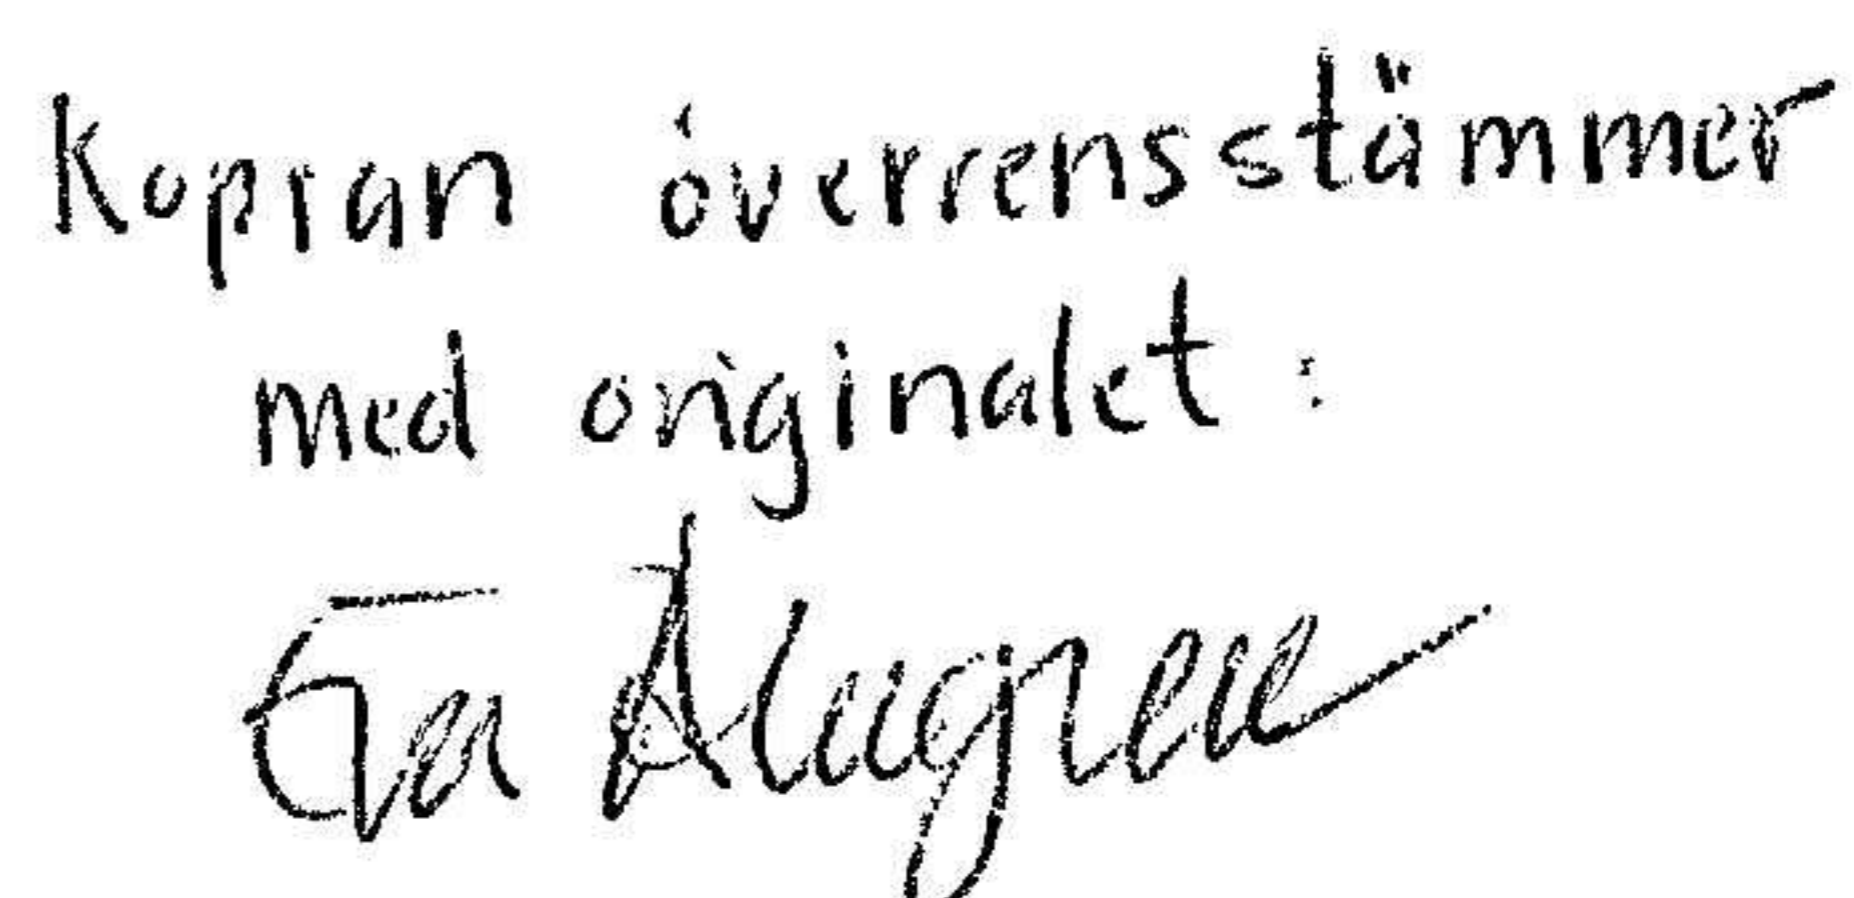 Kopian överrensstämmer
med originalet:
Eva Almgren